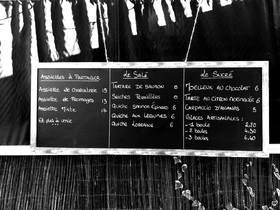 Assiettes à Partager
Assiette de charcuterie 15
Assiette de fromages 13
Assiette Mixte 16
Le Salé
Tartare de saumon 8
Seiches Persillées
Quiche saumon épinard 6
Quiche aux légumes 6
Quiche Lorraine 6
Le Sucré
Moelleux au chocolat 6
Tarte au citron meringuée 6
Carpaccio d'ananas 5
Glaces Artisanales:
- 1 boule 2.50
- 2 boules 4.50
- 3 boules 6.40